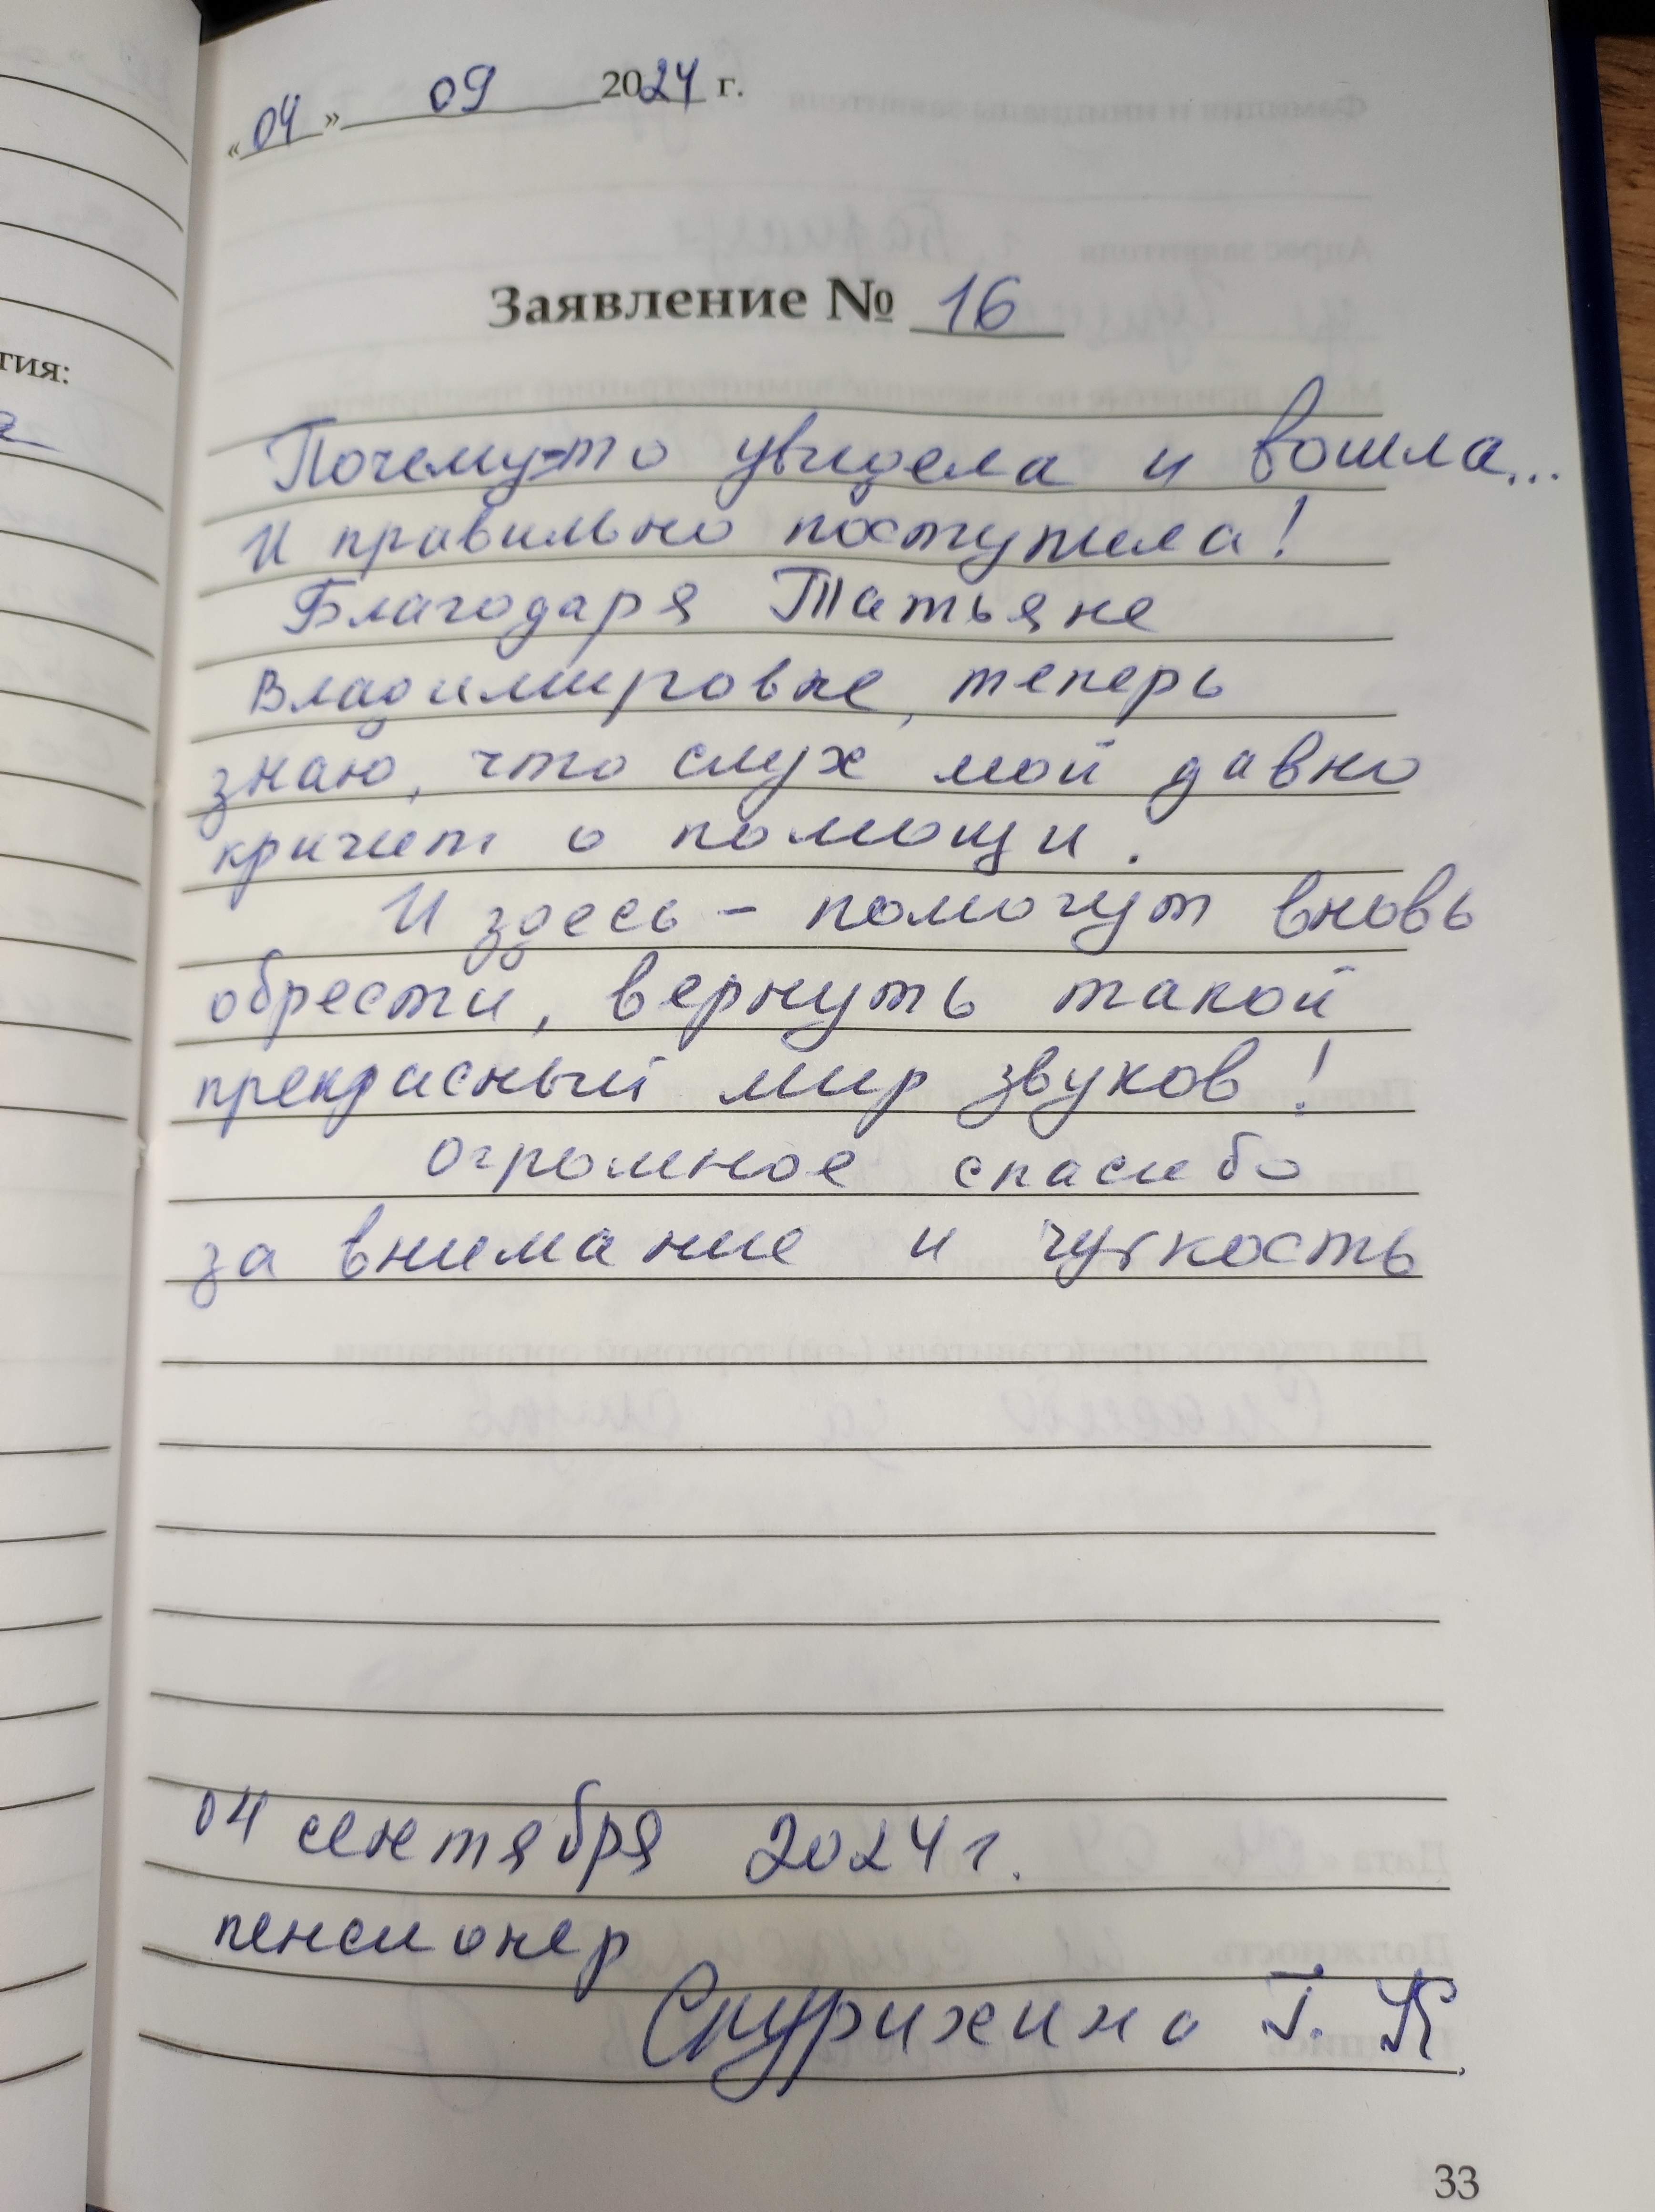 «04» 09 2024 г.
Заявление № 16
тия:
Почему-то увидела и вошла...
И правильно поступила!
Благодаря Татьяне
Владимировне, теперь
знаю, что слух мой давно
кричит о помощи.
И здесь - помогут вновь
обрести, вернуть такой
прекрасный мир звуков!
Огромное спасибо
за внимание и чуткость
04 сентября 2024 г.
пенсионер
Г. К.
33